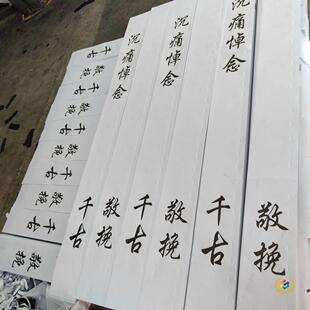 沉痛悼念
千古
敬挽
沉痛悼念
千古
敬挽
沉痛悼念
千古
敬挽
千古
敬挽
千古
敬挽
千古
敬挽
千古
敬挽